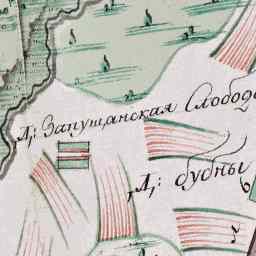 Д: Запущанская Слобода
Д: бубны